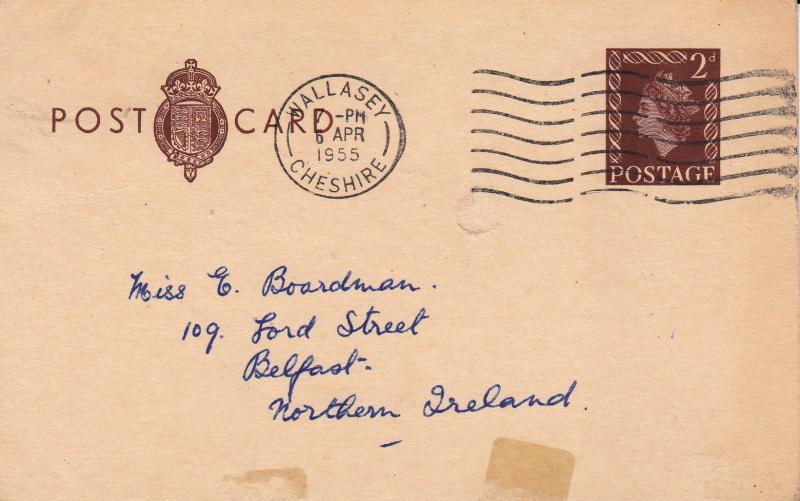 POST CARD
WALLASEY
7 -PM
6 APR
1955
CHESHIRE
2d
POSTAGE
Miss E. Boardman.
109. Ford Street
Belfast.
Northern Ireland.